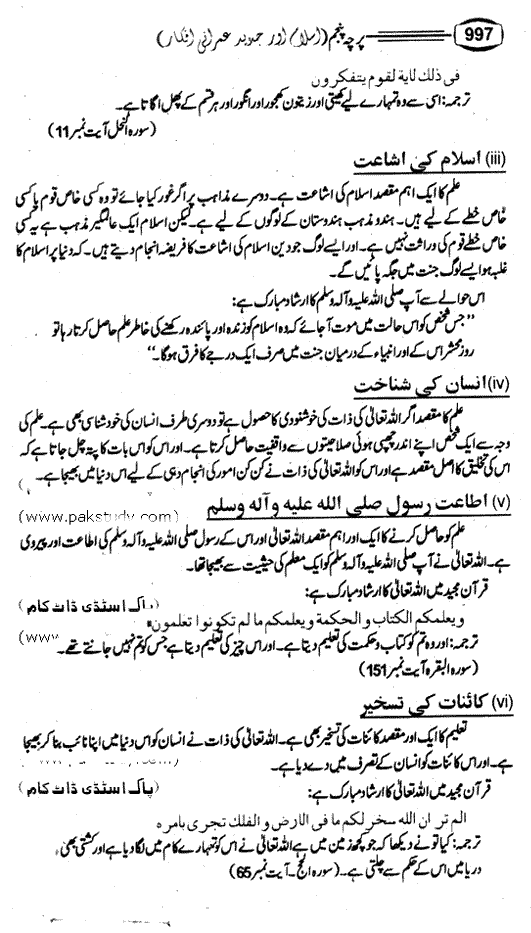 997 پرچہ پنجم (اسلام اور جدید عمرانی افکار)
فى ذلك لاية لقوم يتفكرون
ترجمہ: اسی سے وہ تمہارے لیے کھیتی اور زیتون کھجور اور انگور اور ہر قسم کے پھل اگاتا ہے۔
(سورہ النحل آیت نمبر 11)
(iii) اسلام کی اشاعت
علم کا ایک اہم مقصد اسلام کی اشاعت ہے۔ دوسرے مذاہب پر اگر غور کیا جائے تو وہ کسی خاص قوم یا کسی
خاص خطے کے لیے ہیں۔ ہندو مذہب ہندوستان کے لوگوں کے لیے ہے۔ لیکن اسلام ایک عالمگیر مذہب ہے یہ کسی
خاص خطے قوم کی وراثت نہیں ہے۔ اور ایسے لوگ جو دین اسلام کی اشاعت کا فریضہ انجام دیتے ہیں۔ کہ دنیا پر اسلام کا
غلبہ ہو ایسے لوگ جنت میں جگہ پائیں گے۔
اس حوالے سے آپ صلی اللہ علیہ وآلہ وسلم کا ارشاد مبارک ہے:
’’جس شخص کو اس حالت میں موت آ جائے کہ وہ اسلام کو زندہ اور پائندہ رکھنے کی خاطر علم حاصل کرتا رہا تو
روز محشر اس کے اور انبیاء کے درمیان جنت میں صرف ایک درجے کا فرق ہوگا۔‘‘
(iv) انسان کی شناخت
علم کا مقصد اگر اللہ تعالیٰ کی ذات کی خوشنودی کا حصول ہے تو دوسری طرف انسان کی خود شناسی بھی ہے۔ علم کی
وجہ سے ایک شخص اپنے اندر چھپی ہوئی صلاحیتوں سے واقفیت حاصل کرتا ہے۔ اور اس کو اس بات کا پتہ چل جاتا ہے کہ
اس کی تخلیق کا اصل مقصد ہے اور اس کو اللہ تعالیٰ کی ذات نے کن کن امور کی انجام دہی کے لیے اس دنیا میں بھیجا ہے۔
(v) اطاعت رسول صلی اللہ علیہ و آلہ وسلم
(www.pakstudy.com)
علم کو حاصل کرنے کا ایک اور اہم مقصد اللہ تعالیٰ اور اس کے رسول صلی اللہ علیہ وآلہ وسلم کی اطاعت اور پیروی
ہے۔ اللہ تعالیٰ نے آپ صلی اللہ علیہ وآلہ وسلم کو ایک معلم کی حیثیت سے بھیجا تھا۔
قرآن مجید میں اللہ تعالیٰ کا ارشاد مبارک ہے:
(پاک اسٹڈی ڈاٹ کام)
ويعلمكم الكتاب والحكمة ويعلمكم ما لم تكونوا تعلمون
(www
ترجمہ: اور وہ تم کو کتاب و حکمت کی تعلیم دیتا ہے۔ اور اس چیز کی تعلیم دیتا ہے جس کو تم نہیں جانتے تھے۔
(سورہ البقرہ آیت نمبر 151)
(vi) کائنات کی تسخیر
تعلیم کا ایک اور مقصد کائنات کی تسخیر بھی ہے۔ اللہ تعالیٰ کی ذات نے انسان کو اس دنیا میں اپنا نائب بنا کر بھیجا
ہے۔ اور اس کائنات کو انسان کے تصرف میں دے دیا ہے۔
قرآن مجید میں اللہ تعالیٰ کا ارشاد مبارک ہے:
(پاک اسٹڈی ڈاٹ کام)
الم تر ان الله سخر لكم ما فى الارض و الفلك تجرى بامره
ترجمہ: کیا تو نے دیکھا کہ جو کچھ زمین میں ہے اللہ تعالیٰ نے اس کو تمہارے کام میں لگا دیا ہے اور کشتی بھی
دریا میں اس کے حکم سے چلتی ہے۔ (سورہ الحج۔ آیت نمبر 65)